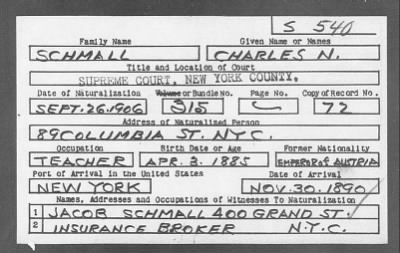 S 540
Family Name Given Name or Names
SCHMALL CHARLES N.
Title and Location of Court
SUPREME COURT, NEW YORK COUNTY.
Date of Naturalization Volume or Bundle No. Page No. Copy of Record No.
SEPT. 26. 1906 315 72
Address of Naturalized Person
89 COLUMBIA ST. N.Y.C.
Occupation Birth Date or Age Former Nationality
TEACHER APR. 2. 1885 EMPEROR of AUSTRIA
Port of Arrival in the United States Date of Arrival
NEW YORK NOV. 30. 1890
Names, Addresses and Occupations of Witnesses To Naturalization
1 JACOB SCHMALL 400 GRAND ST.
2 INSURANCE BROKER N.Y.C.